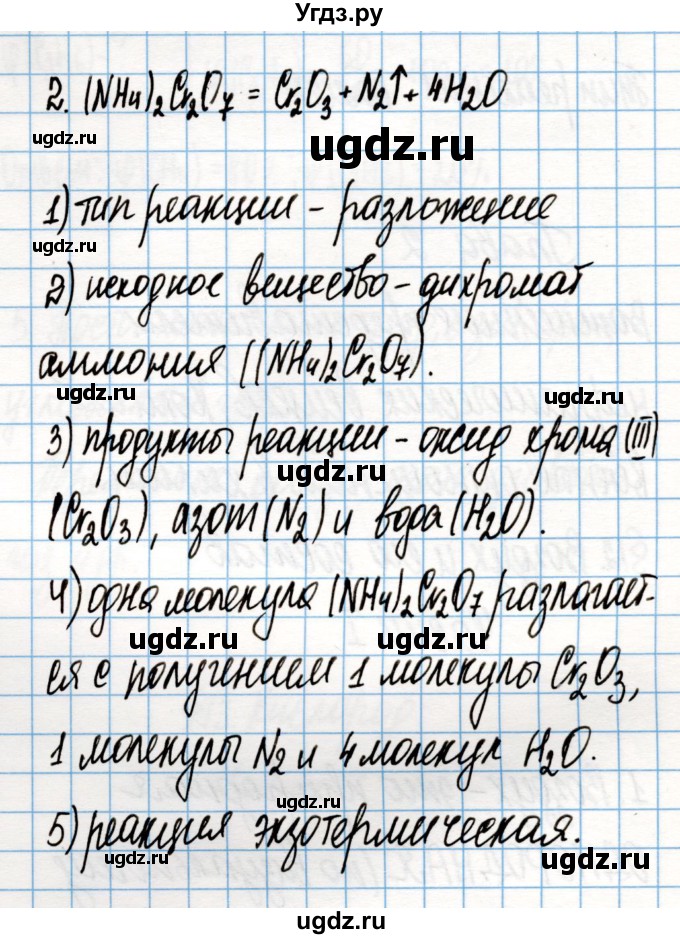 Угдз.ру
2. (NH4)2Cr2O7 = Cr2O3 + N2↑ + 4H2O
ugdz.ru
ugdz.ru
1) тип реакции - разложение
ugdz.ru
2) исходное вещество - дихромат
аммония ((NH4)2Cr2O7).
ugdz.ru
ugdz.ru
3) продукты реакции - оксид хрома (III)
ugdz.ru
(Cr2O3), азот (N2) и вода (H2O).
4) одна молекула (NH4)2Cr2O7 разлагает-
ugdz.ru
ugdz.ru
ся с получением 1 молекулы Cr2O3,
1 молекулы N2 и 4 молекул H2O.
ugdz.ru
5) реакция экзотермическая.
ugdz.ru
ugdz.ru
ugdz.ru